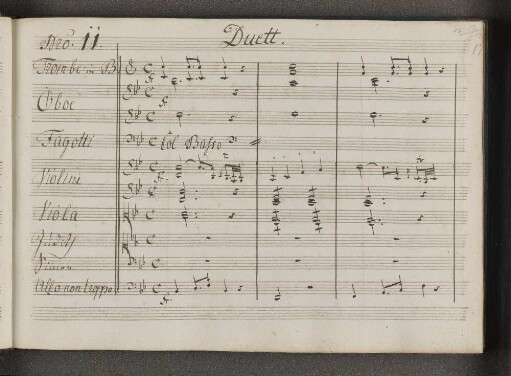 Nro. 11. Duett.
Trombe in B
Oboe
Fagotti Col Basso
Violini
Viola
Simon
All.o non troppo